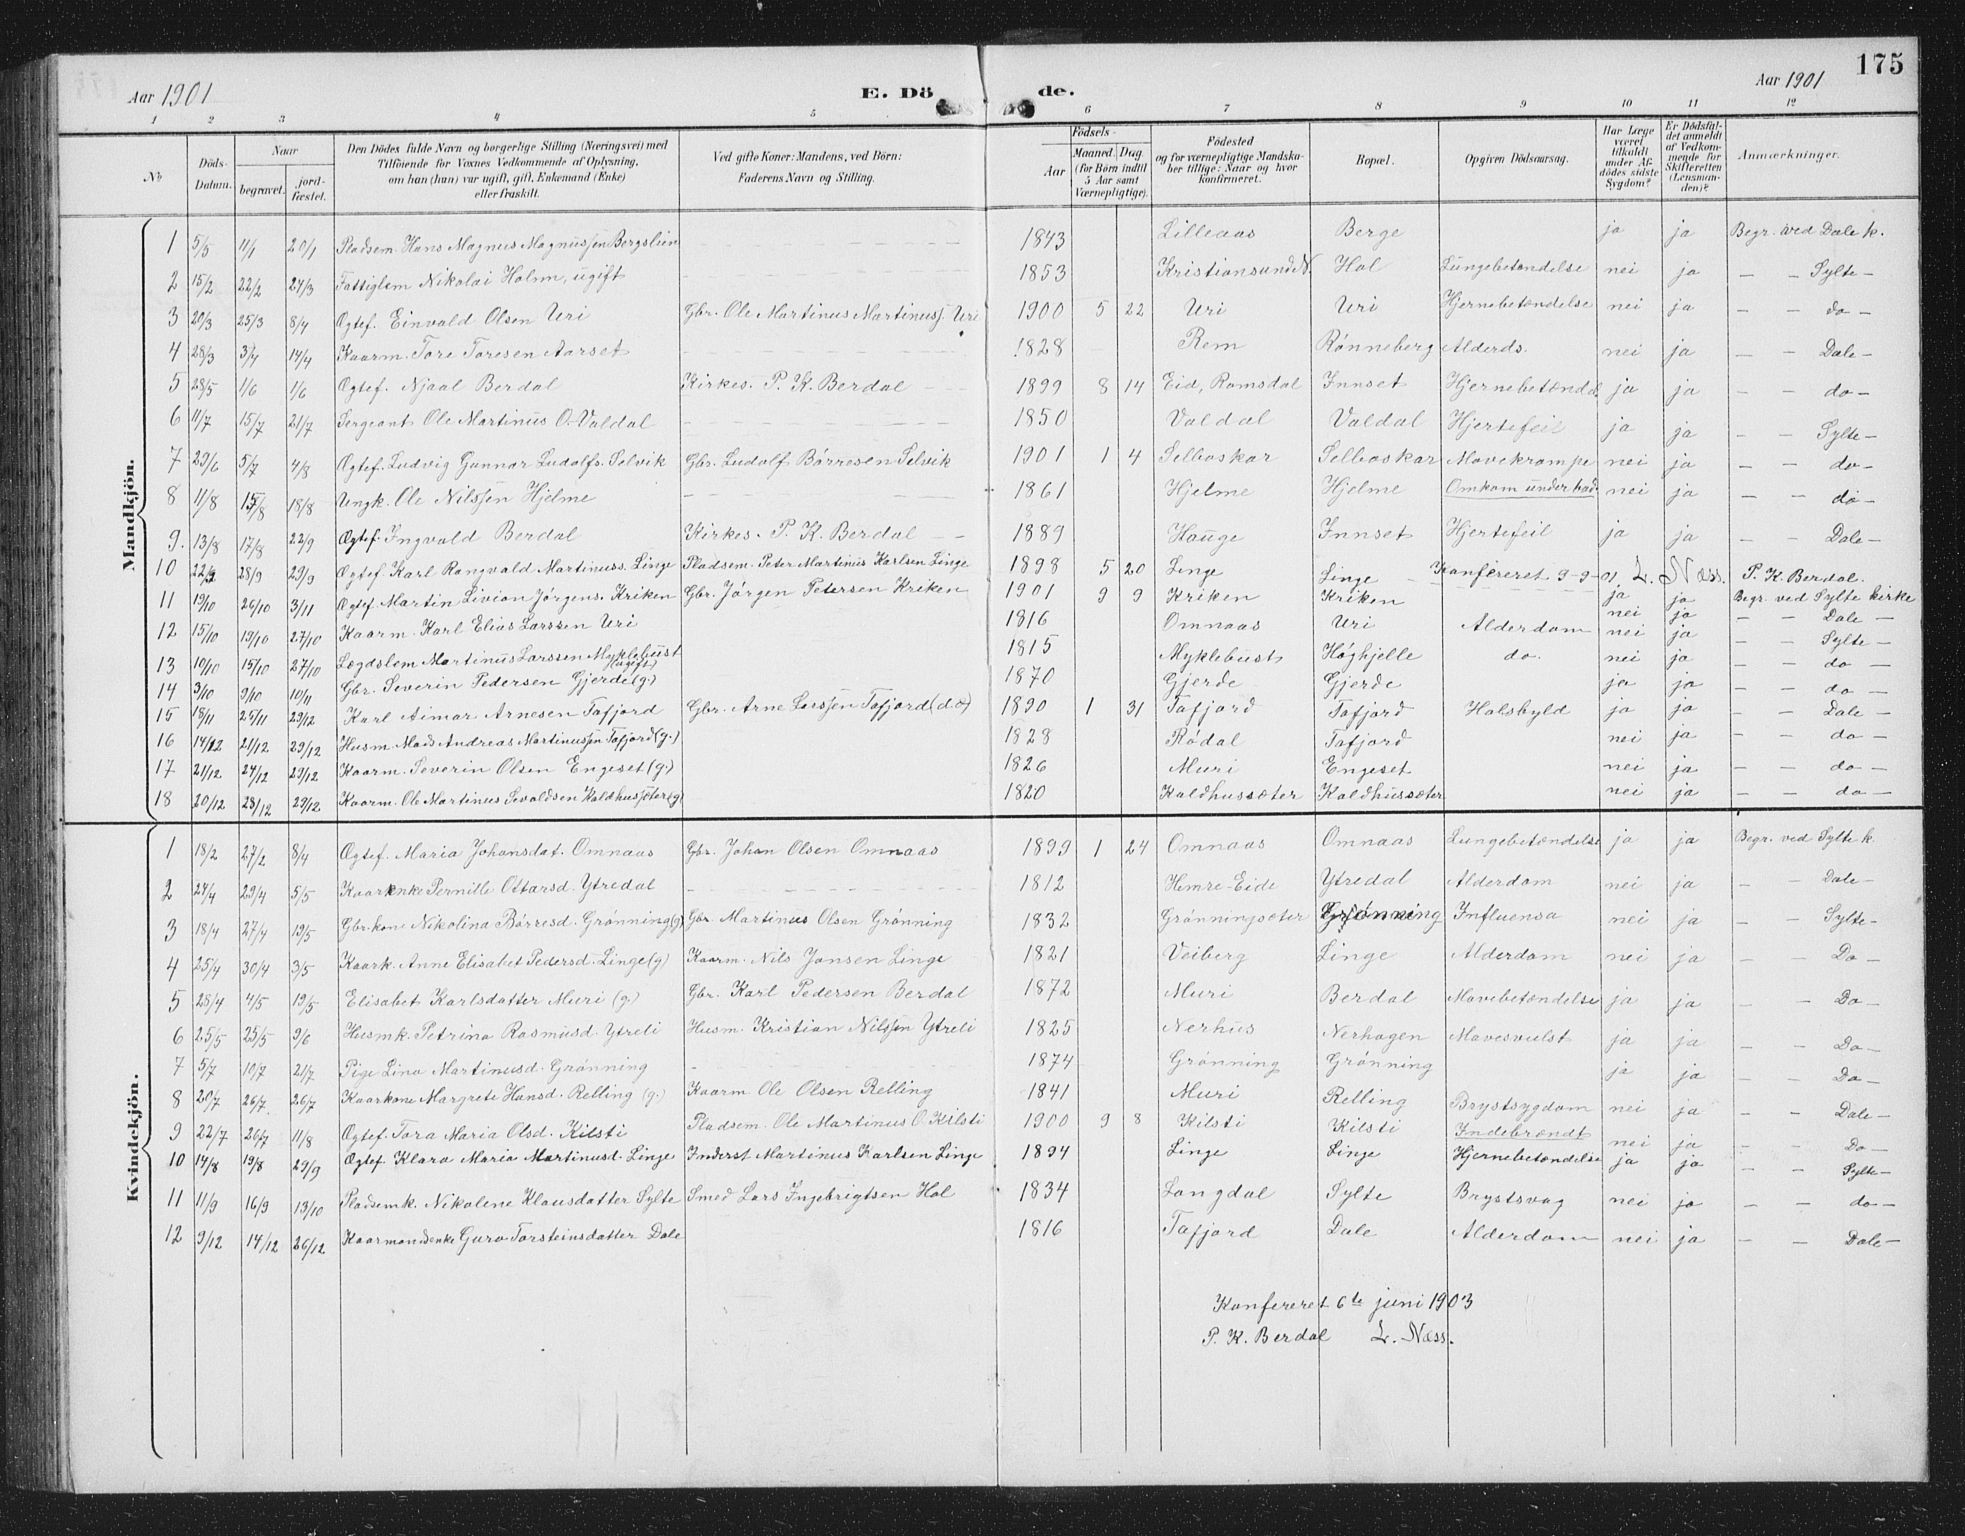 175
Aar 1901 E. Dö de. Aar 1901
1 2 3 4 5 6 7 8 9 10 11 12
No Döds-Datum. Naar begravet. jordfæstet. Den Dödes fulde Navn og borgerlige Stilling (Næringsvei) med Tilföiende for Voxnes Vedkommende af Oplysning, om han (hun) var ugift, gift, Enkemand (Enke) eller fraskilt. Ved gifte Koner: Mandens, ved Börn: Faderens Navn og Stilling. Födsels- Aar Maaned. Dag (for Börn indtil 5 Aar samt Værnepligtige). Födested og for værnepligtige Mandskaber tillige: Naar og hvor konfirmeret. Bopæl. Opgiven Dödsaarsag. Har Læge været tilkaldt under Afdödes sidste Sygdom? Er Dödsfaldet anmeldt af Vedkommende for Skifteretten (Lensmanden)? Anmærkninger.
Mandkjön.
1 5/5 11/1 20/1 Pladsem. Hans Magnus Magnussen Bergslien 1843 Lilleaas Berge ja ja Begr. ved Dale k.
2 15/2 22/2 24/3 Fattiglem Nikolai Holm, ugift 1853 Kristiansund N. Hol Lungebetændelse nei ja — — Sylte —
3 20/3 25/3 8/4 Ogtef. Einvald Olsen Uri Gbr. Ole Martinus Martinusj. Uri 1900 5 22 Uri Uri Hjernebetændelse nei ja — — do —
4 28/3 3/4 14/4 Kaarm. Tore Toresen Aarset 1828 Rem Rønneberg Alderds. nei ja — — Dale —
5 28/5 1/6 1/6 Ogtef. Njaal Berdal Kirkes. P. K. Berdal 1899 8 14 Eid, Romsdal Innset Hjernebetændel ja ja — — do —
6 11/7 15/7 21/7 Sergeant Ole Martinus O. Valdal 1850 Valdal Valdal Hjertefeil ja ja — — Sylte —
7 29/6 5/7 4/8 Ogtef. Ludvig Gunnar Ludolfs. Selvik Gbr. Ludolf Børresen Selvik 1901 1 4 Selboskar Selboskar Mavekrampe nei ja — — do —
8 11/8 15/8 18/8 Ungk. Ole Nilssen Hjelme 1861 Hjelme Hjelme Omkom under bad. nei ja — — do —
9. 13/8 17/8 22/9 Ogtef. Ingvald Berdal Kirkes. P. K. Berdal 1889 Hauge Innset Hjertefeil ja ja — — Dale —
10 22/9 28/9 29/9 Ogtef. Karl Rangvald Martinuss. Linge Pladsem. Peter Martinus Karlsen Linge 1898 5 20 Linge Linge Konfereret 9-9-01. L. Næss. P. K. Berdal.
11 19/10 26/10 3/11 Ogtef. Martin Livion Jørgens. Kriken Gbr. Jørgen Petersen Kriken 1901 9 9 Kriken Kriken ja ja Begr. ved Sylte kirke
12 15/10 19/10 27/10 Kaarm. Karl Elias Larssen Uri 1816 Omnaas Uri Alderdom nei ja — — Dale —
13 10/10 15/10 27/10 Lægdslem Martinus Larssen Myklebust (ugift) 1815 Myklebust Høghjelle do. nei ja — — Sylte —
14 3/10 9/10 10/11 Gbr. Severin Pedersen Gjerde (g.) 1870 Gjerde Gjerde nei ja — — do —
15 18/11 25/11 29/12 Karl Aimar Arnesen Tafjord Gbr. Arne Larssen Tafjord (d.o) 1890 1 31 Tafjord Tafjord Halsbyld ja ja — — do —
16 14/12 21/12 29/12 Husm. Mads Andreas Martinussen Tafjord (g.) 1828 Rødal Tafjord nei ja — — do —
17 21/12 24/12 29/12 Kaarm. Severin Olsen Engeset (g.) 1826 Muri Engeset nei ja — — do —
18 20/12 28/12 29/12 Kaarm. Ole Martinus Sevaldsen Kaldhussæter (g) 1820 Kaldhussæter Kaldhussæter nei ja — — do —
Kvindekjön.
1 18/2 27/2 8/4 Ogtef. Maria Johansdat. Omnaas Gbr. Johan Olsen Omnaas 1899 1 24 Omnaas Omnaas Lungebetændelse ja ja Begr. ved Sylte k.
2 24/4 29/4 5/5 Kaarenke Pernille Ottarsd. Ytredal 1812 Hemre-Eide Ytredal Alderdom nei ja — — Dale —
3 18/4 27/4 19/5 Gbr.kone Nikolina Børresd. Grønning (g) Gbr. Martinus Olsen Grønning 1832 Grønningsæter Grønning Influensa nei ja — — Sylte —
4 25/4 30/4 3/5 Kaark. Anne Elisabet Pedersd. Linge (g) Kaarm. Nils Jonsen Linge 1821 Veiberg Linge Alderdom nei ja — — Do —
5 28/4 4/5 19/5 Elisabet Karlsdatter Muri (g.) Gbr. Karl Pedersen Berdal 1872 Muri Berdal Mavebetændelse ja ja — — Do —
6 25/5 25/5 9/6 Husmk. Petrina Rasmusd. Ytreli Husm. Kristian Nilssen Ytreli 1825 Nerhus Nerhagen Mavesvulst ja ja — — Do —
7 5/7 10/7 21/7 Pige Lina Martinusd. Grønning 1874 Grønning Grønning ja ja — — Do —
8 20/7 26/7 26/7 Kaarkone Margrete Hansd. Relling (g.) Kaarm Ole Olsen Relling 1841 Muri Relling Brystsygdom nei ja — — Dale —
9 22/7 26/7 11/8 Ogtef. Tora Maria Olsd. Kilsti Pladsem. Ole Martinus O. Kilsti 1900 9 8 Kilsti Kilsti Indebrændt nei ja — — Do —
10 14/8 19/8 29/9 Ogtef. Klara Maria Martinusd. Linge Inderst Martinus Karlsen Linge 1894 Linge Linge Hjernebetændelse ja ja — — Sylte —
11 11/9 16/9 13/10 Pladsemk. Nikoline Klausdatter Sylte Smed Lars Ingebrigtsen Hol 1834 Langdal Sylte Brystsvag nei ja — — do —
12 9/12 14/12 26/12 Kaarmandsenke Guro Torsteinsdatter Dale 1816 Tafjord Dale Alderdom nei ja — — Dale —
Konfereret 6te juni 1903
P. K. Berdal L. Næss.